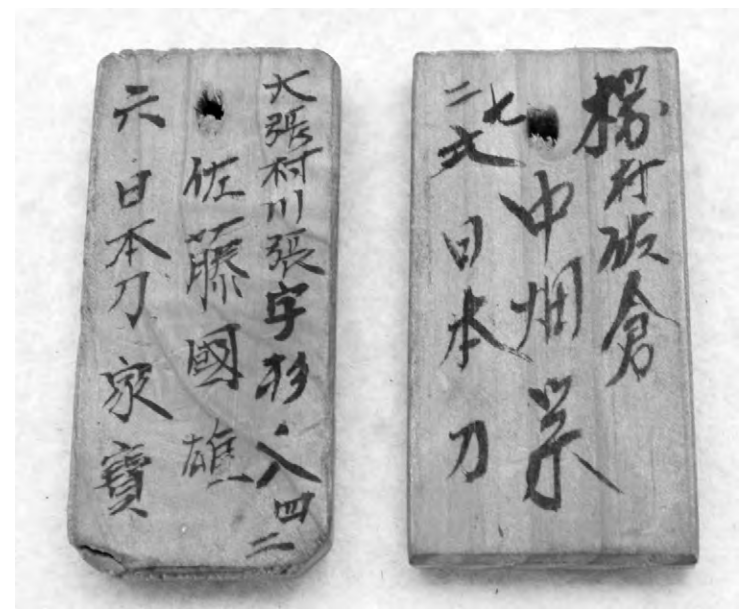 大張村川張字杉ノ入四二
佐藤國雄
六 日本刀 家寶
村 倉
中畑
日本刀